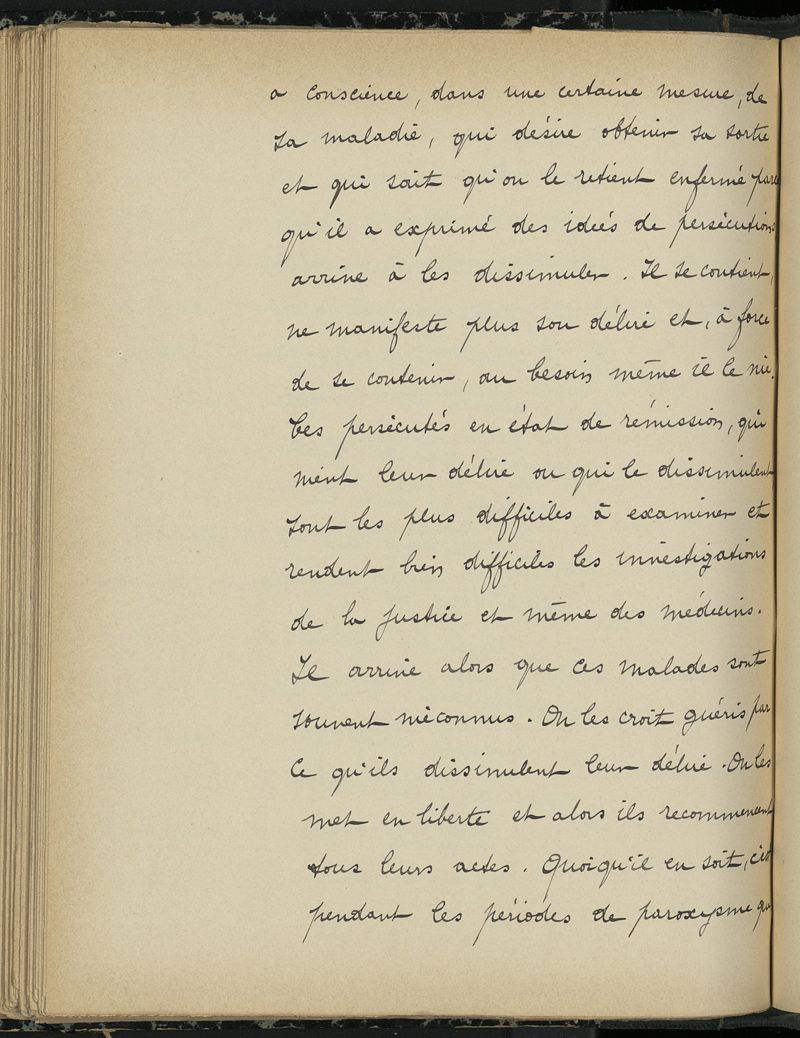 a conscience, dans une certaine mesure, de
sa maladie, qui désire obtenir sa sortie
et qui sait qu'on le retient enfermé parce
qu'il a exprimé des idées de persécutions
arrive à les dissimuler. Il se contient,
ne manifeste plus son délire et, à force
de se contenir, au besoin même il le nie.
Ces persécutés en état de rémission, qui
nient leur délire ou qui le dissimulent
sont les plus difficiles à examiner et
rendent bien difficiles les investigations
de la justice et même des médecins.
Il arrive alors que ces malades sont
souvent méconnus. On les croit guéris par
ce qu'ils dissimulent leur délire. On les
met en liberte et alors ils recommencent
tous leurs actes. Quoiqu'il en soit, c'est
pendant les périodes de paroxysme qu